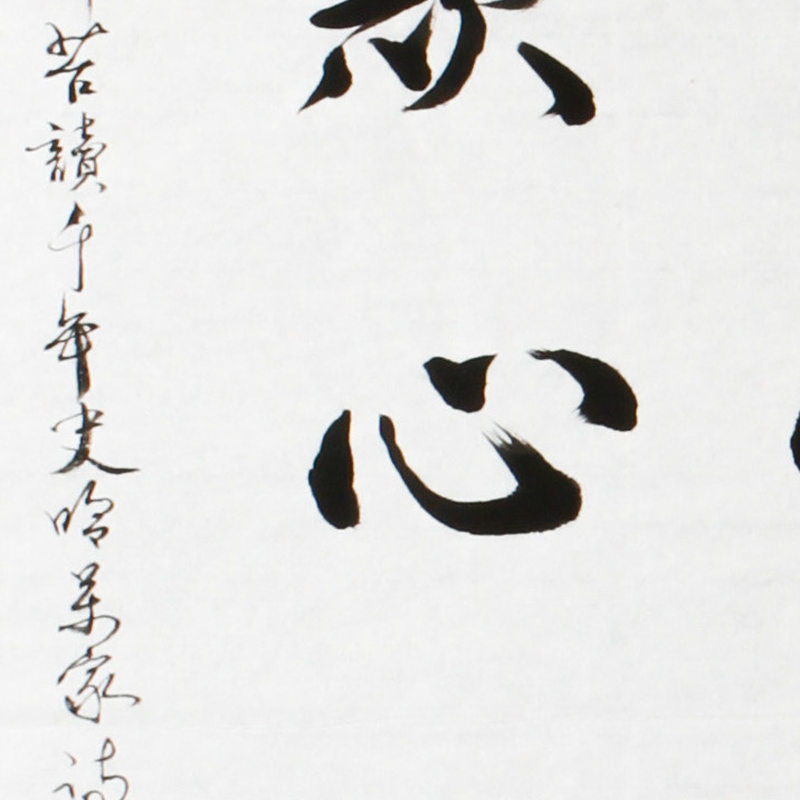 赤心
苦讀千年史吟萬家詩